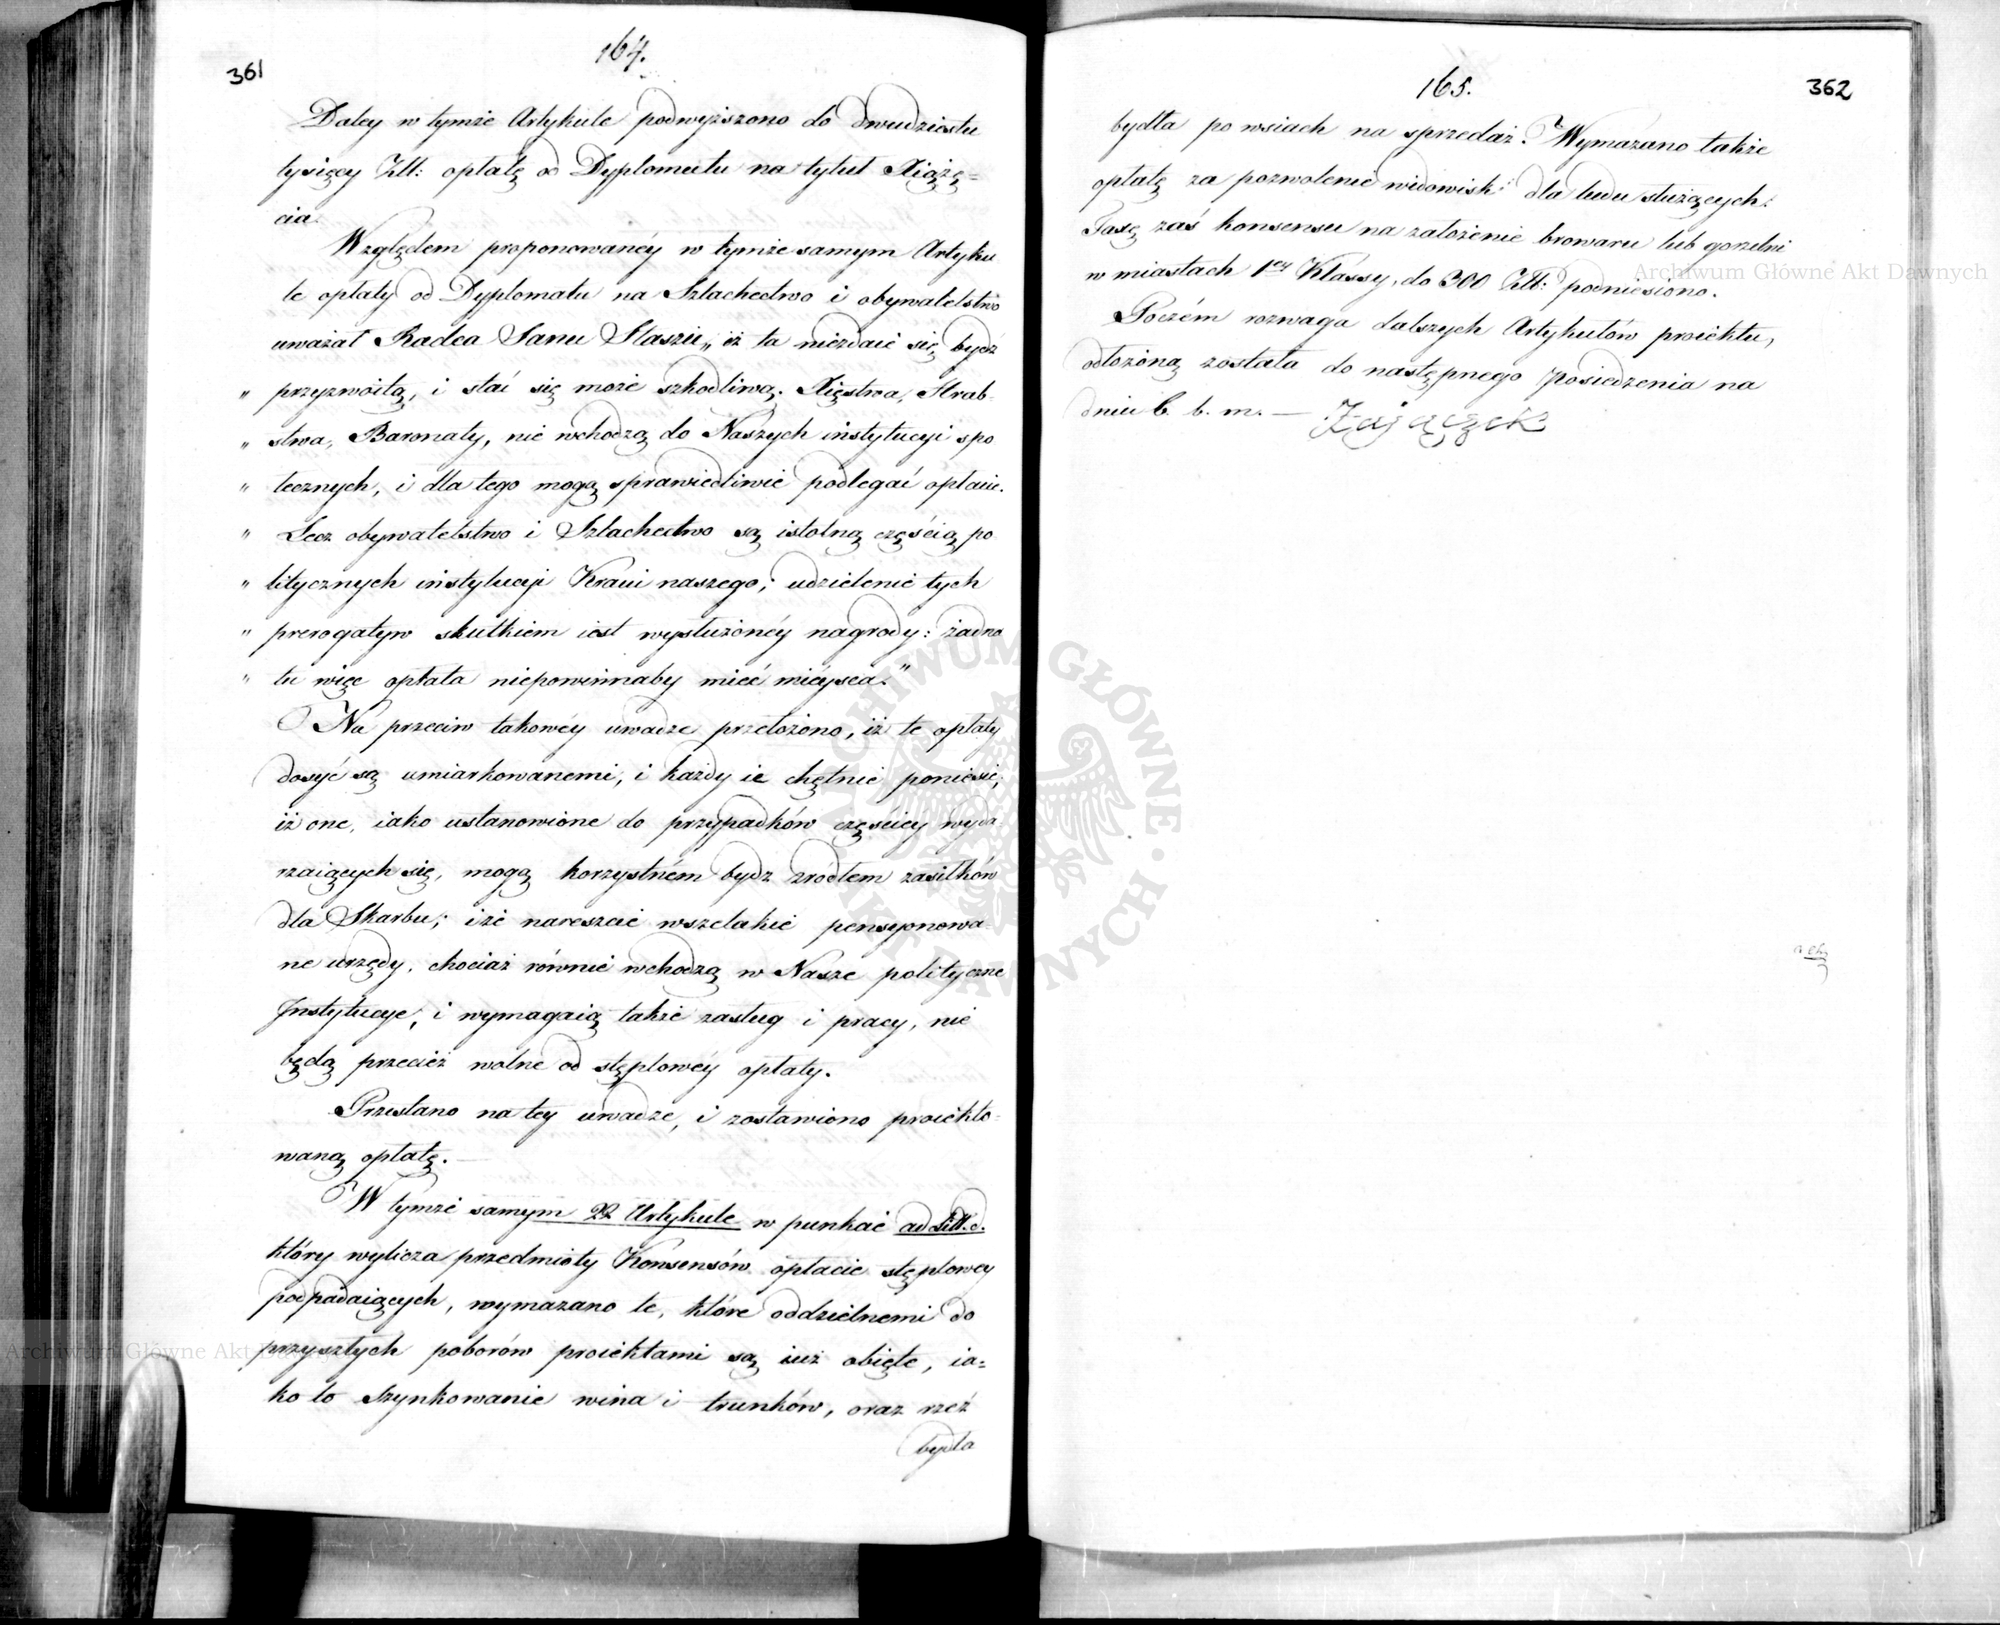 361
164.
Daley w tymże Artykule podwyższono do dwudziestu
tysięcy Złł: opłatę od Dyplomatu na tytuł Xiążę=
cia.
Względem proponowanéy w tymże samym Artyku
le opłaty od Dyplomatu na Szlachectwo i obywatelstwo
uważał Radca Stanu Staszic „iż ta niezdaie się bydź
„ przyzwoitą, i stać się może szkodliwą. Xięstwa, Hrab-
„ stwa, Baronaty, nie wchodzą do Naszych instytucyi spo
„ łecznych, i dla tego mogą sprawiedliwie podlegać opłacie.
„ Lecz obywatelstwo i Szlachectwo są istotną częścią po
„ litycznych instytucyi Kraiu naszego; udzielenie tych
„ prerogatyw skutkiem iest wysłużonéy nagrody: żadna
„ tu więc opłata niepowinnaby mieć mieysca."
Na przeciw takowéy uwadze przełożono, iż te opłaty
dosyć są umiarkowanemi, i każdy ie chętnie poniesie;
iż one, iako ustanowione do przypadków częściey wyda-
rzaiących się, mogą korzystném bydz zrodłem zasiłków
dla Skarbu; iże nareszcie wszelakie pensyonowa-
ne urzędy, chociaż równie wchodzą w Nasze polityczne
Instytucye, i wymagaią także zasług i pracy, nie
będą przecież wolne od stęplowéy opłaty.
Przestano na tey uwadze, i zostawiono proiekto-
waną opłatę. —
W tymże samym 22 Artykule w punkcie ad Litt. c.
który wylicza przedmioty Konsensów opłacie stęplowey
podpadaiących, wymazano te, które oddzielnemi do
przyszłych poborów proiektami są iuż obięte, ia=
ko to Szynkowanie wina i trunków, oraz rzeź
bydła
165.
362
bydła po wsiach na sprzedaż. Wymazano także
opłatę za pozwolenie widowisk dla ludu służących.
Taxę zaś konsensu na założenie browaru lub gorzelni
w miastach 1ey Klassy, do 300 Złł: podniesiono.
Poczém rozwaga dalszych Artykułów proiektu,
odłożoną została do następnego posiedzenia na
dniu 6. b. m. — Zajączek
Archiwum Główne Akt Dawnych
Archiwum Główne Akt Dawnych
ARCHIWUM GŁÓWNE AKT DAWNYCH